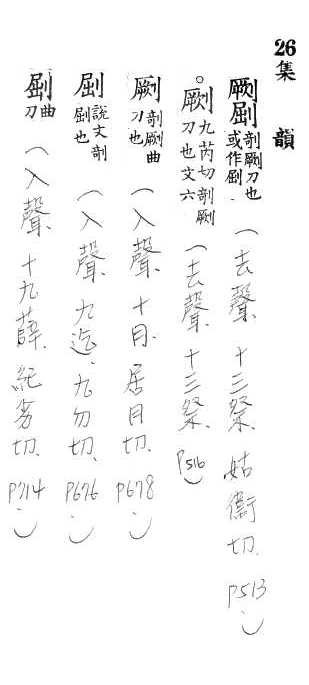 26 集韻
劂㓹 剞劂刀也或作㓹.(去聲.十三祭.姑衞切.P513)
。劂 九芮切剞劂刀也文六(去聲.十三祭.P516)
劂 剞劂曲刀也(入聲.十月.居月切.P678)
㓹 說文剞㓹也(入聲.九迄.九勿切.P676)
㓹 曲刀(入聲.十九薛.紀劣切.P714)